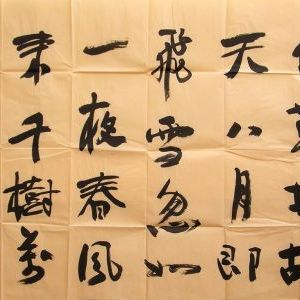 天八月即
飛雪忽如
一夜春風
来千樹萬